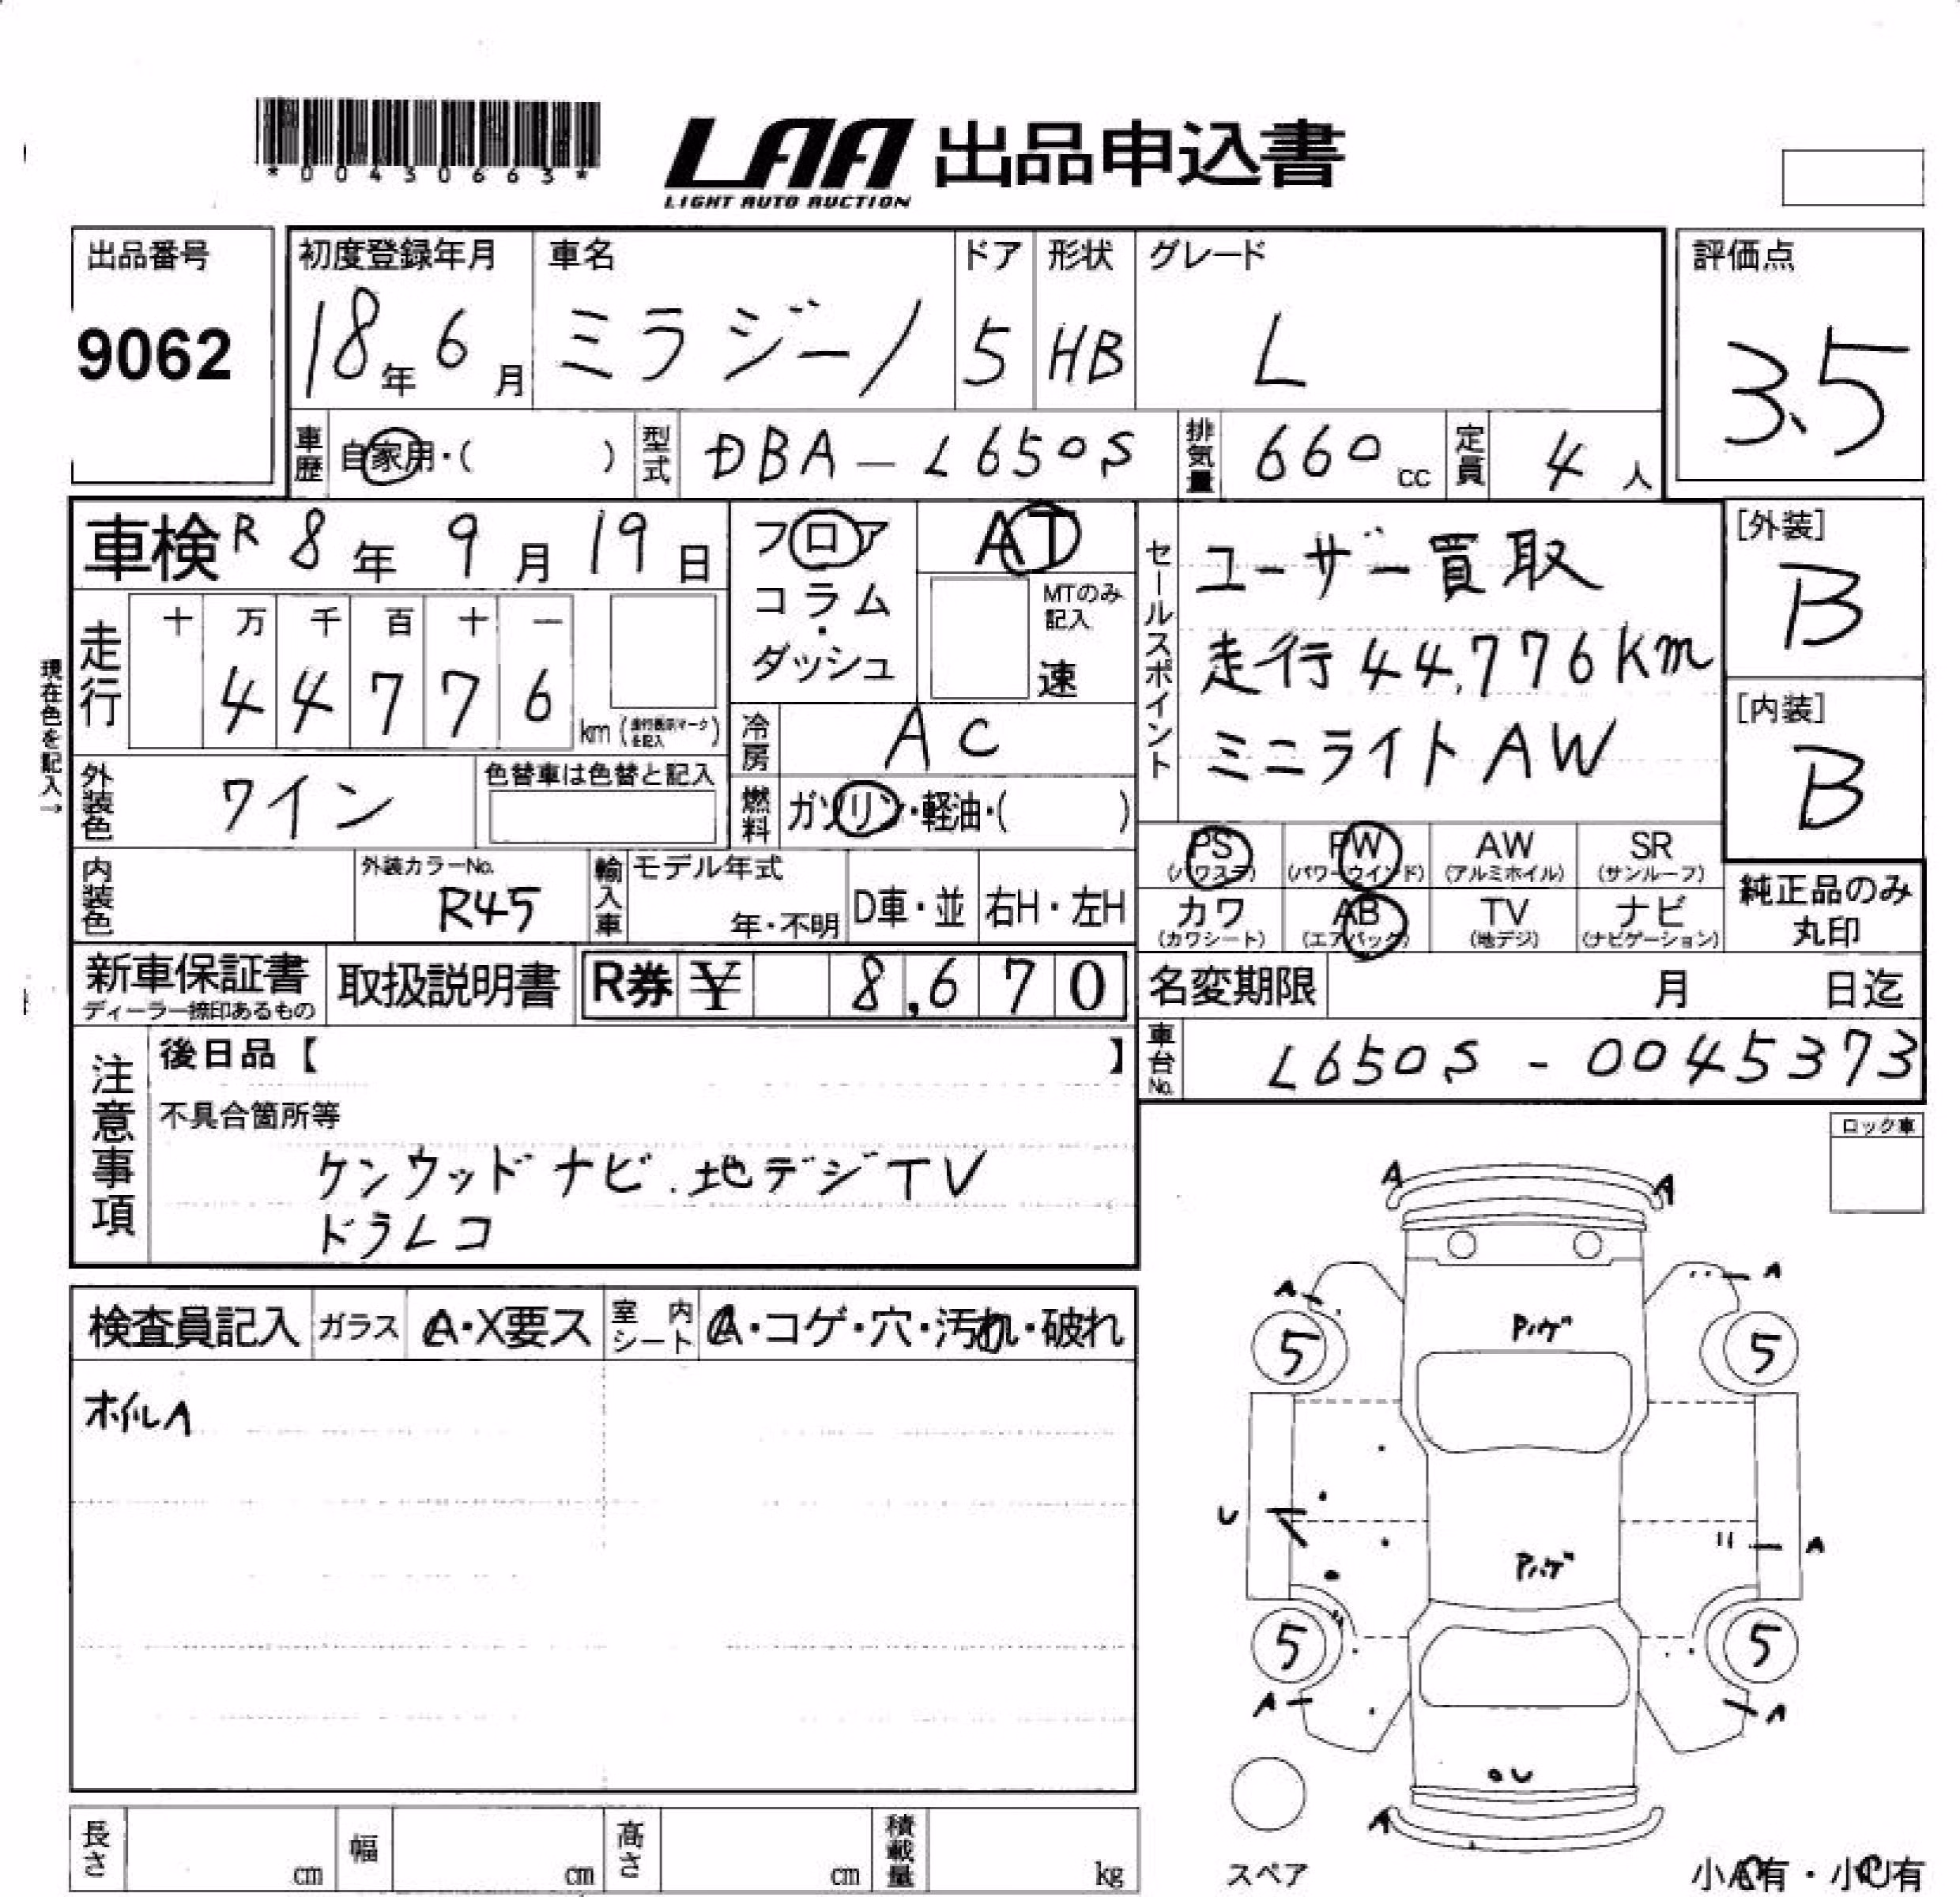 *00430663*
LAA 出品申込書
LIGHT AUTO AUCTION
出品番号
9062
初度登録年月
18年6月
車名
ミラジーノ
ドア
5
形状
HB
グレード
L
評価点
3.5
車歴
自家用・( )
型式
DBA-L650S
排気量
660cc
定員
4人
車検 R8年9月19日
フロア
コラム
・
ダッシュ
AT
MTのみ
記入
速
セールスポイント
ユーザー買取
走行44,776km
ミニライトAW
[外装]
B
[内装]
B
現在色を記入→
走行
十 万 千 百 十 一
4 4 7 7 6
km (走行表示マークを記入)
冷房
AC
外装色
ワイン
色替車は色替と記入
燃料
ガソリン・軽油・( )
PS
(パワステ)
PW
(パワーウインド)
AW
(アルミホイル)
SR
(サンルーフ)
カワ
(カワシート)
AB
(エアバック)
TV
(地デジ)
ナビ
(ナビゲーション)
純正品のみ
丸印
内装色
外装カラーNo.
R45
輸入車
モデル年式
年・不明
D車・並
右H・左H
新車保証書
ディーラー捺印あるもの
取扱説明書
R券 ¥ 8,670
名変期限
月 日迄
車台No.
L650S-0045373
注意事項
後日品【 】
不具合箇所等
ケンウッドナビ.地デジTV
ドラレコ
ロック車
検査員記入
ガラス
A・X要ス
室内
シート
A・コゲ・穴・汚れ・破れ
ホイルA
A
A
A
A
Pハゲ
5
5
U
A
Pハゲ
5
5
A
A
U
A
スペア
小A有・小U有
長さ
cm
幅
cm
高さ
cm
積載量
kg